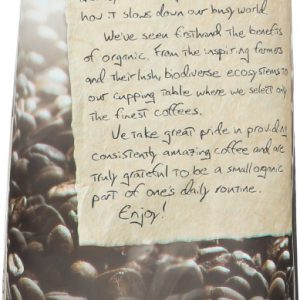 how it slows down our busy world.
We've seen firsthand the benefits
of organic. From the inspiring farmers
and their lush, biodiverse ecosystems to
our cupping table where we select only
the finest coffees.
We take great pride in providing
consistently amazing coffee and are
truly grateful to be a small organic
part of one's daily routine.
Enjoy!